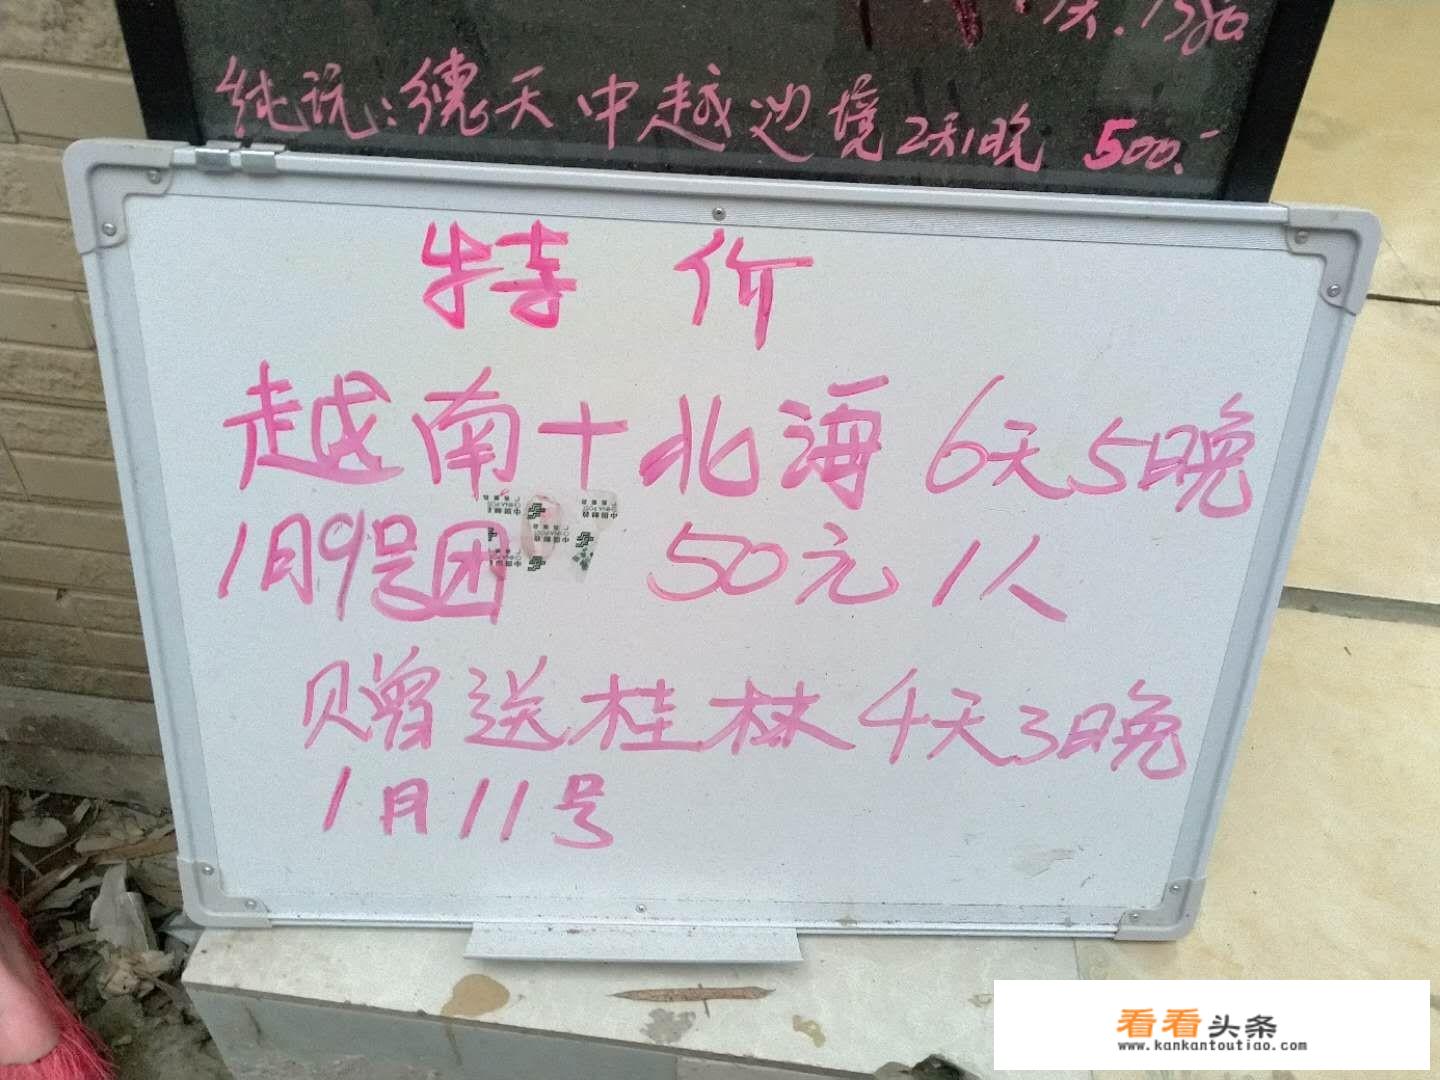 天.1380.
纯玩:德天中越边境2天1晚 500.-
特价
越南+北海6天5晚
1月9号团 50元1人
赠送桂林4天3晚
1月11号
看看头条
www.kankantoutiao.com